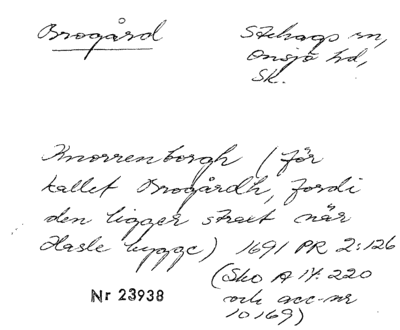 Brogård
Stehags sn,
Onsjö hd,
Sk.
Knorrenborgh (för
kallet Brogårdh, fordi
den ligger straet när
Hasle bygge) 1691 PR 2:126
(Sko A IV:220
och acc-nr
10169)
Nr 23938